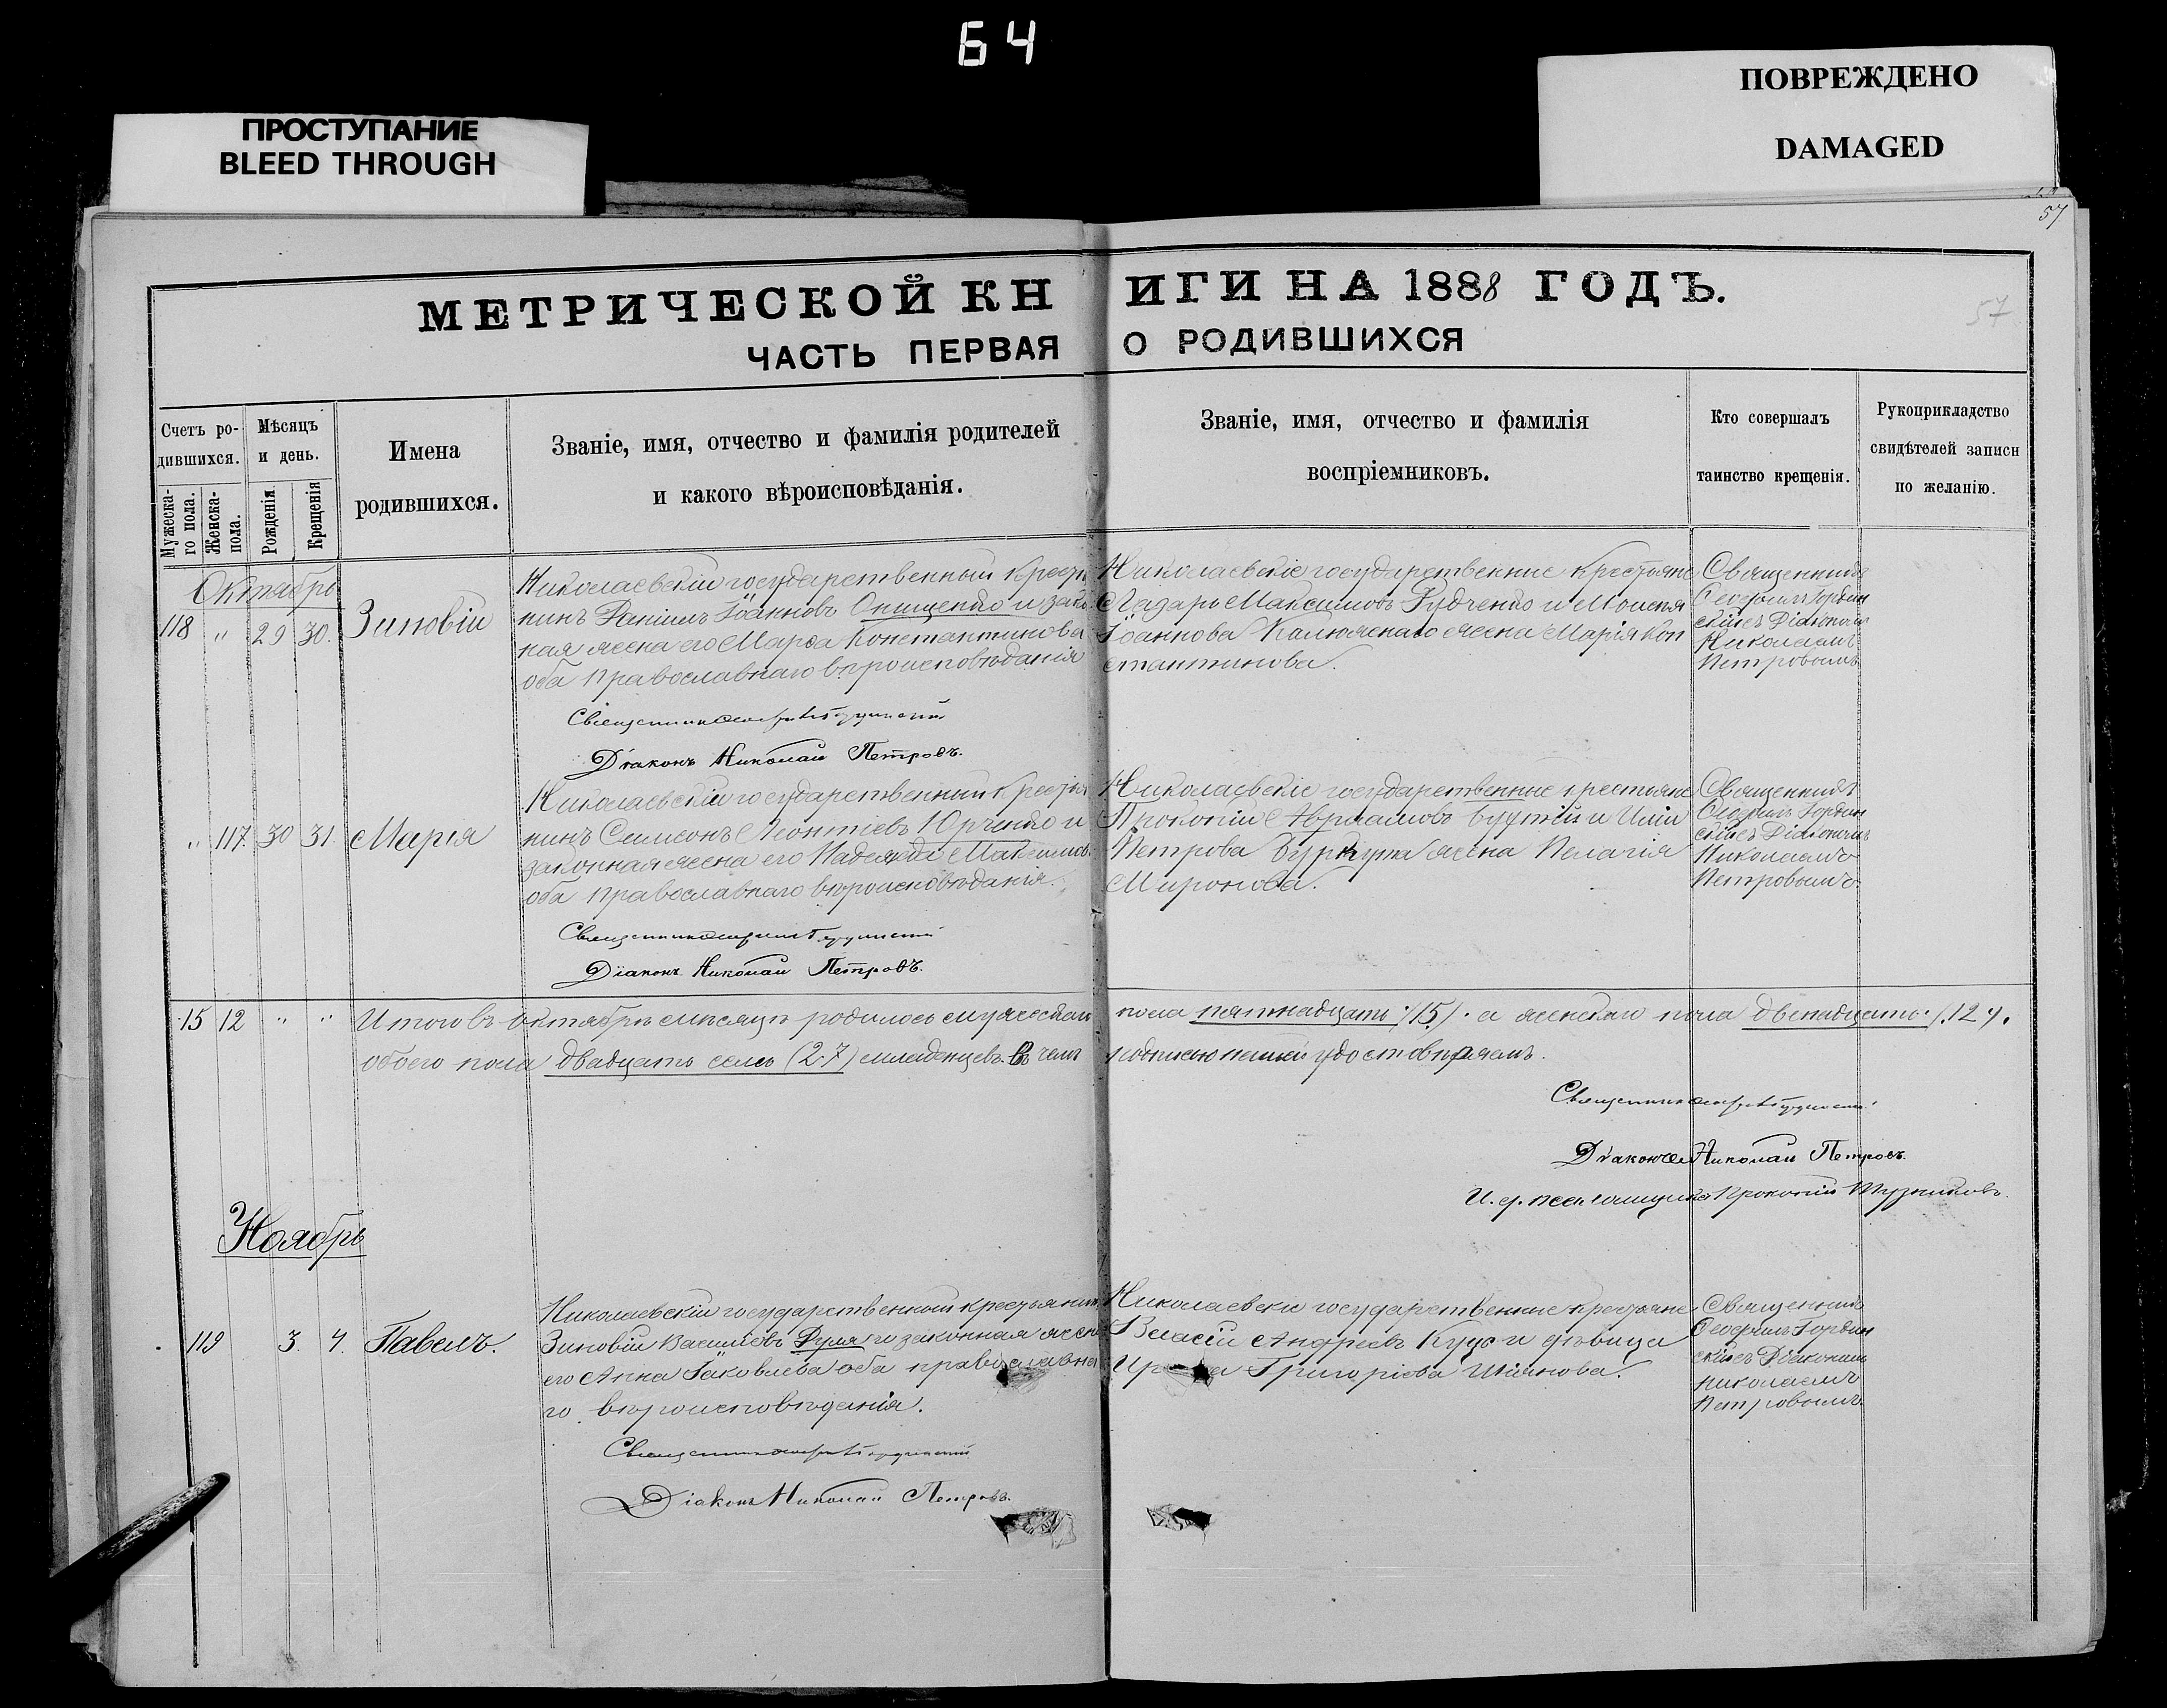 64
ПРОСТУПАНИЕ
BLEED THROUGH
ПОВРЕЖДЕНО
DAMAGED
57
57
МЕТРИЧЕСКОЙ КНИГИ НА 1888 ГОДЪ.
ЧАСТЬ ПЕРВАЯ О РОДИВШИХСЯ
Счетъ ро-
дившихся.
Мужеска-
го пола.
Женска-
пола.
Мѣсяцъ
и день.
Рожденія.
Крещенія
Имена
родившихся.
Званіе, имя, отчество и фамилія родителей
и какого вѣроисповѣданія.
Званіе, имя, отчество и фамилія
воспріемниковъ.
Кто совершалъ
таинство крещенія.
Рукоприкладство
свидѣтелей записи
по желанію.
Октябрь
118 " 29 30. Зиновій
Николаевскій государственный кресть
нинъ Даніилъ Іоанновъ Онищенко и закон
ная жена его Марѳа Константинова
оба православнаго вѣроисповѣданія
Николаевскіе государственные крестьяне
Лазарь Максимовъ Рудченко и Моисея
Іоаннова Калюжнаго жена Марія Кон
стантинова.
Священникъ
Діакономъ
Николаемъ
Петровымъ
Священникъ
Діаконъ Николай Петровъ.
" 117. 30 31. Марія
Николаевскій государственный крестья
нинъ Симеонъ Леонтіевъ Юрченко и
законная жена его Надежда Максимов.
оба православнаго вѣроисповѣданія.
Николаевскіе государственные крестьяне
Прокопій Авраамовъ и Иліи
Петрова жена Пелагія
Миронова.
Священникъ
Діакономъ
Николаемъ
Петровымъ
Священникъ
Діаконъ Николай Петровъ.
15 12 " " Итого въ октябрѣ мѣсяцѣ родилось мужескаго пола пятнадцать /15/. а женскаго пола двѣнадцать /.12./.
обоего пола двадцать семь (27) младенцевъ. Въ чемъ подписью нашей удостовѣряемъ.
Священникъ
Діаконъ Николай Петровъ.
И. д. псаломщика Прокопій
Ноябрь
119 3. 4. Павелъ.
Николаевскій государственный крестьянинъ
Зиновій Васильевъ и законная жена
его Анна Іаковлева оба православна
го вѣроисповѣданія.
Николаевскіе государственные крестьяне
Власій Андреевъ Куцъ и дѣвица
Григоріева
Священникъ
Діакономъ
Николаемъ
Петровымъ
Священникъ
Діаконъ Николай Петровъ.